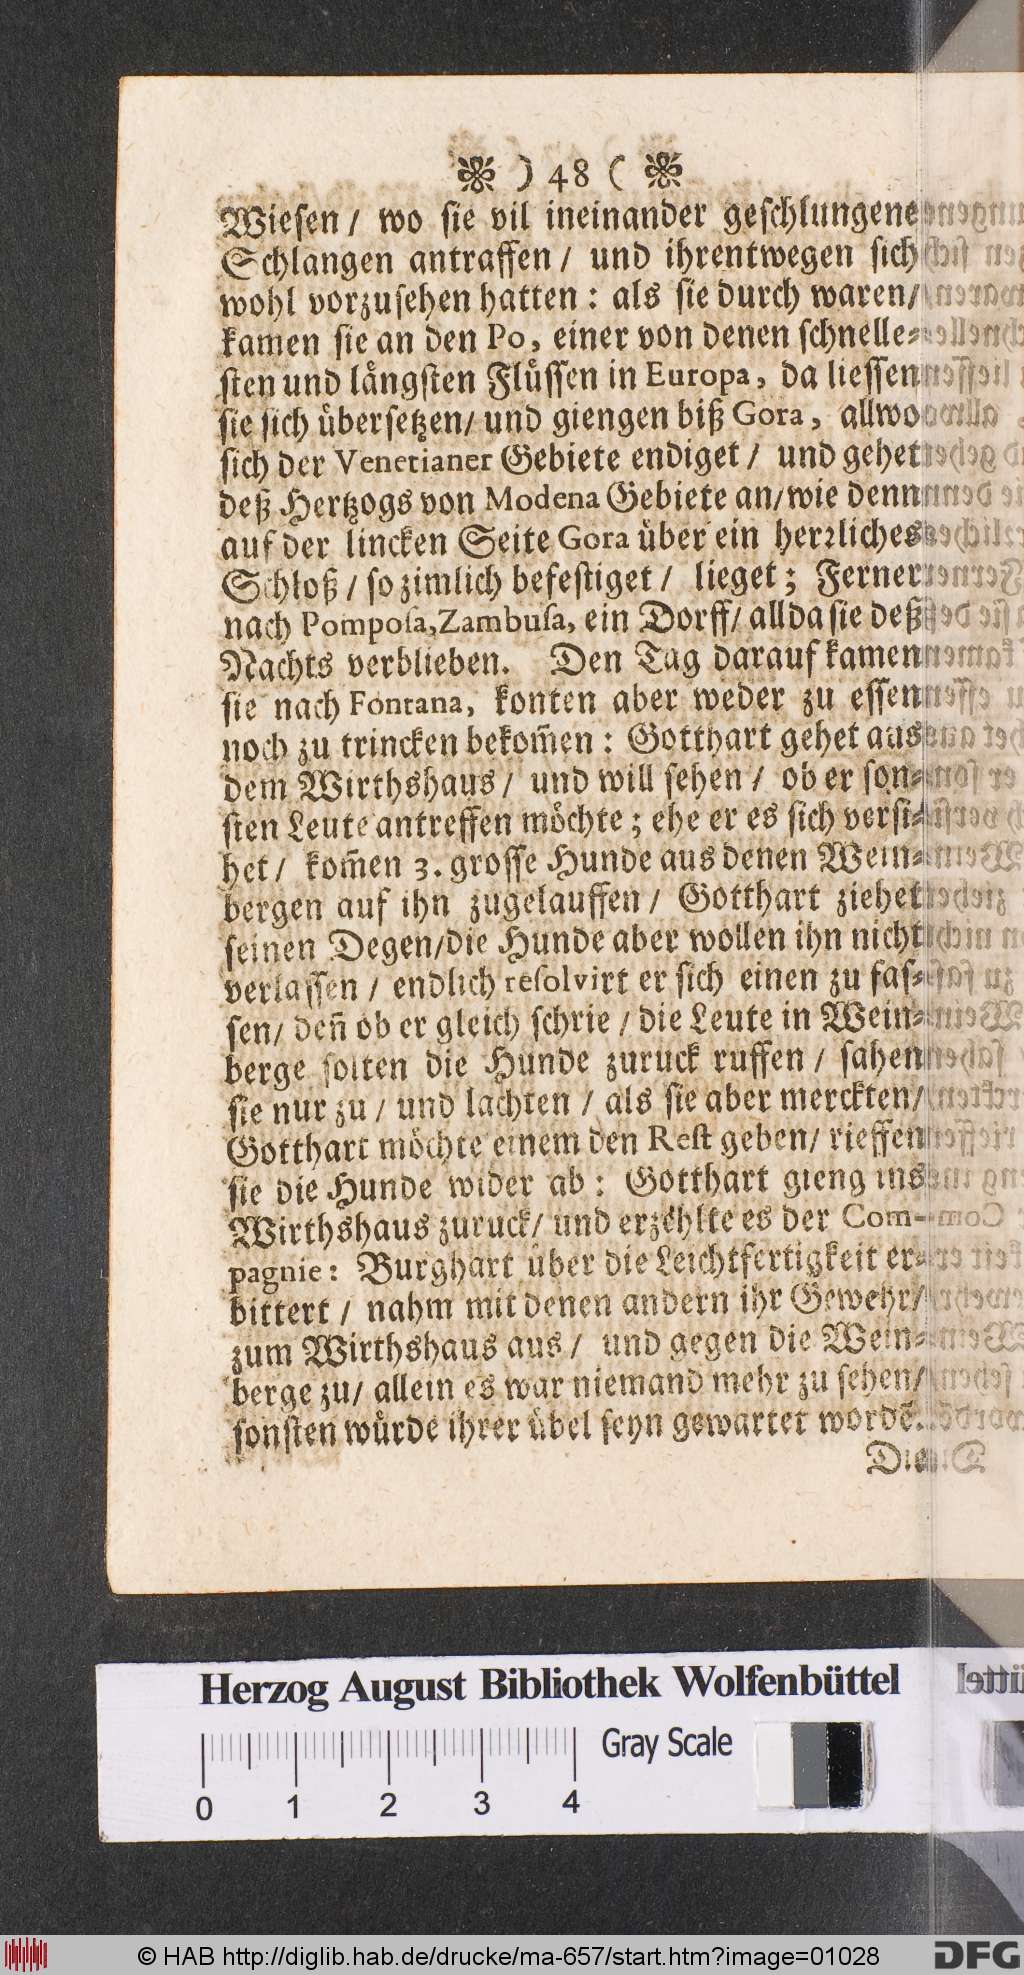 ) 48 (
Wiesen / wo sie vil ineinander geschlungene
Schlangen antraffen / und ihrentwegen sich
wohl vorzusehen hatten : als sie durch waren /
kamen sie an den Po, einer von denen schnelle-
sten und långsten Flüssen in Europa, da liessen
sie sich übersetzen / und giengen biß Gora, allwo
sich der Venetianer Gebiete endiget / und gehet
deß Hertzogs von Modena Gebiete an / wie denn
auf der lincken Seite Gora über ein herrliches
Schloß / so zimlich befestiget / lieget ; Ferner
nach Pomposa, Zambusa, ein Dorff / allda sie deß
Nachts verblieben. Den Tag darauf kamen
sie nach Fontana, konten aber weder zu essen
noch zu trincken bekom̃en : Gotthart gehet aus
dem Wirthshaus / und will sehen / ob er son-
sten Leute antreffen möchte ; ehe er es sich versi-
het / kom̃en 3. grosse Hunde aus denen Wein-
bergen auf ihn zugelauffen / Gotthart ziehet
seinen Degen / die Hunde aber wollen ihn nicht
verlassen / endlich resolvirt er sich einen zu fas-
sen / deñ ob er gleich schrie / die Leute in Wein-
berge solten die Hunde zuruck ruffen / sahen
sie nur zu / und lachten / als sie aber merckten /
Gotthart möchte einem den Rest geben / rieffen
sie die Hunde wider ab : Gotthart gieng ins
Wirthshaus zuruck / und erzehlte es der Com-
pagnie : Burghart über die Leichtfertigkeit er-
bittert / nahm mit denen andern ihr Gewehr /
zum Wirthshaus aus / und gegen die Wein-
berge zu / allein es war niemand mehr zu sehen /
sonsten würde ihrer übel seyn gewartet wordẽ.
Die
Herzog August Bibliothek Wolfenbüttel
Gray Scale
0 1 2 3 4
© HAB http://diglib.hab.de/drucke/ma-657/start.htm?image=01028
DFG